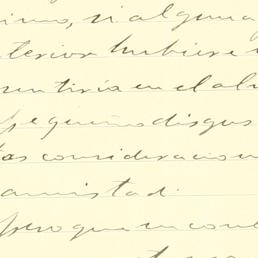 imo, si alguna
terior hubiere
sentiría en el al
pequeño disgus
tas consideracion
amistad.
pero que en con